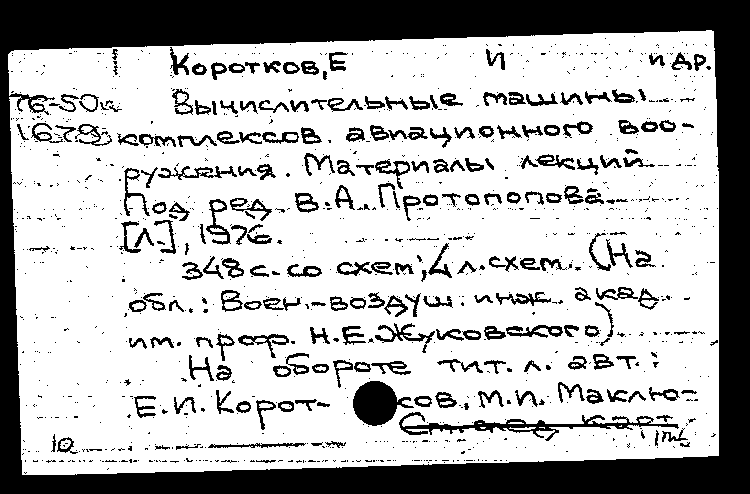 Коротков, Е И и др.
76-50 Вычислительные машины
1679 комплексов авиационного воо-
ружения. Материалы лекций
Под ред. В.А. Протопопова.
[Л.], 1976.
348 с. со схем; 4 л. схем. (На
обл.: Воен.-воздуш. инж. акад.
им. проф. Н.Е. Жуковского)
На обороте тит. л. авт.:
Е.И. Корот- сов, М.И. Маклю-
См. след. карт.
10